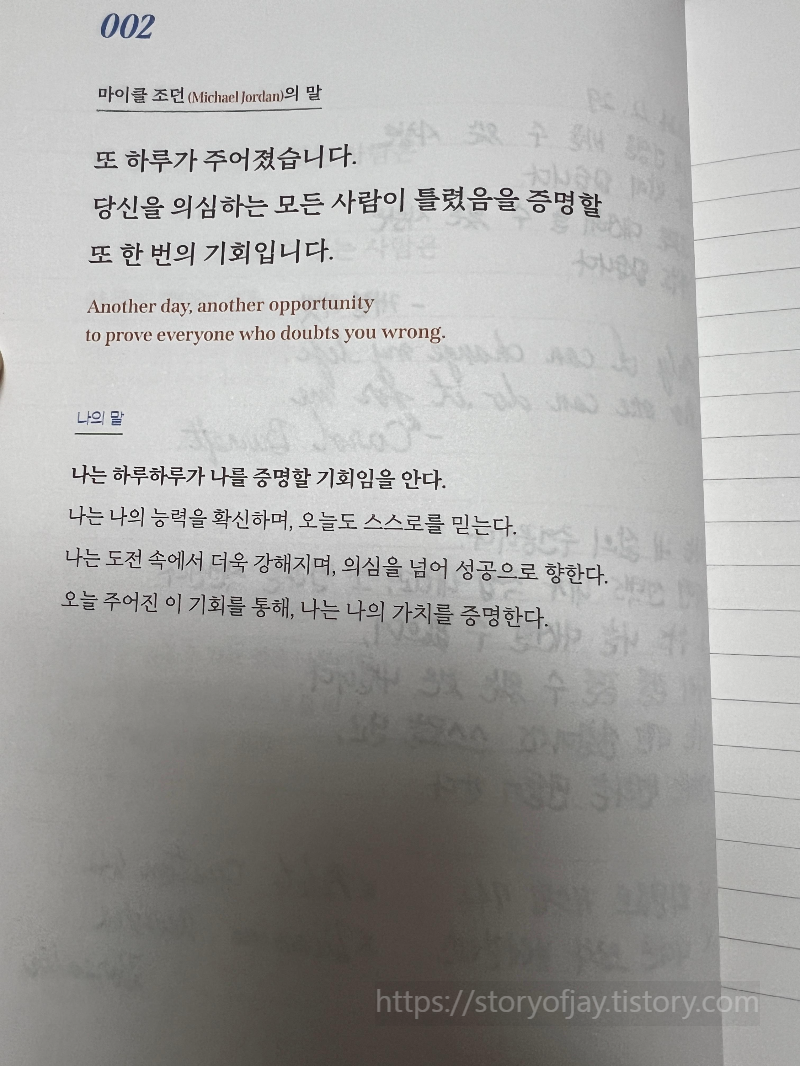 002
마이클 조던(Michael Jordan)의 말
또 하루가 주어졌습니다.
당신을 의심하는 모든 사람이 틀렸음을 증명할
또 한 번의 기회입니다.
Another day, another opportunity
to prove everyone who doubts you wrong.
나의 말
나는 하루하루가 나를 증명할 기회임을 안다.
나는 나의 능력을 확신하며, 오늘도 스스로를 믿는다.
나는 도전 속에서 더욱 강해지며, 의심을 넘어 성공으로 향한다.
오늘 주어진 이 기회를 통해, 나는 나의 가치를 증명한다.
https://storyofjay.tistory.com